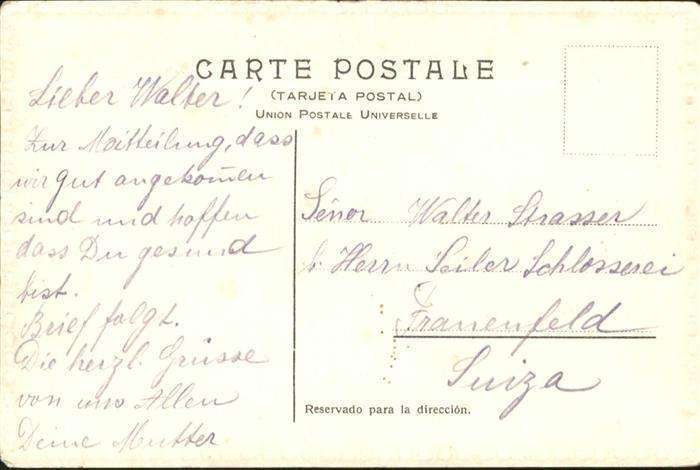 CARTE POSTALE
(TARJETA POSTAL)
UNION POSTALE UNIVERSELLE
Lieber Walter!
Zur Maitteilung, dass
wir gut angekom̄en
sind und hoffen
dass Du gesund
bist.
Brief folgt.
Die herzl. Grüsse
von uns Allen
Deine Mutter
Señor Walter Strasser
Herrn Seiler Schlosserei
Frauenfeld
Suiza
Reservado para la dirección.